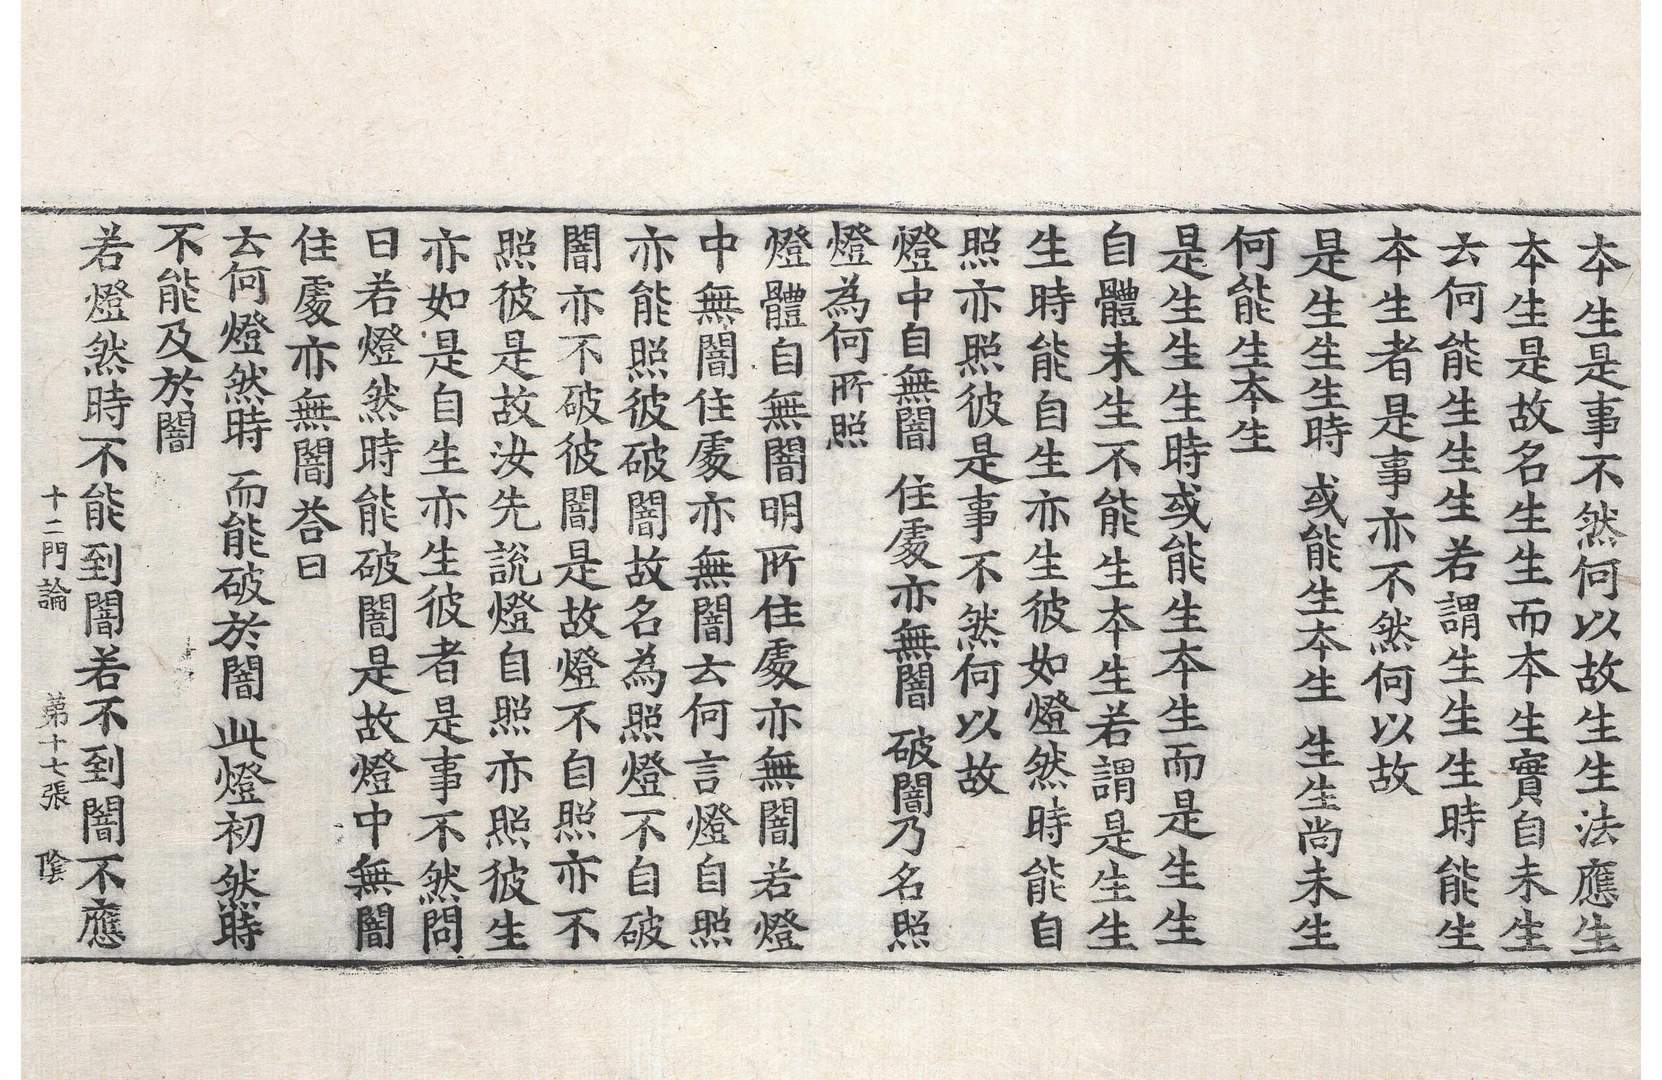 本生是事不然何以故生生法應生
本生是故名生生而本生實自未生
云何能生生生若謂生生生時能生
本生者是事亦不然何以故
是生生生時 或能生本生 生生尚未生
何能生本生
是生生生時或能生本生而是生生
自體未生不能生本生若謂是生生
生時能自生亦生彼如燈然時能自
照亦照彼是事不然何以故
燈中自無闇 住處亦無闇 破闇乃名照
燈為何所照
燈體自無闇明所住處亦無闇若燈
中無闇住處亦無闇云何言燈自照
亦能照彼破闇故名為照燈不自破
闇亦不破彼闇是故燈不自照亦不
照彼是故汝先說燈自照亦照彼生
亦如是自生亦生彼者是事不然問
曰若燈然時能破闇是故燈中無闇
住處亦無闇荅曰
云何燈然時 而能破於闇 此燈初然時
不能及於闇
若燈然時不能到闇若不到闇不應
十二門論 第十七張 陰